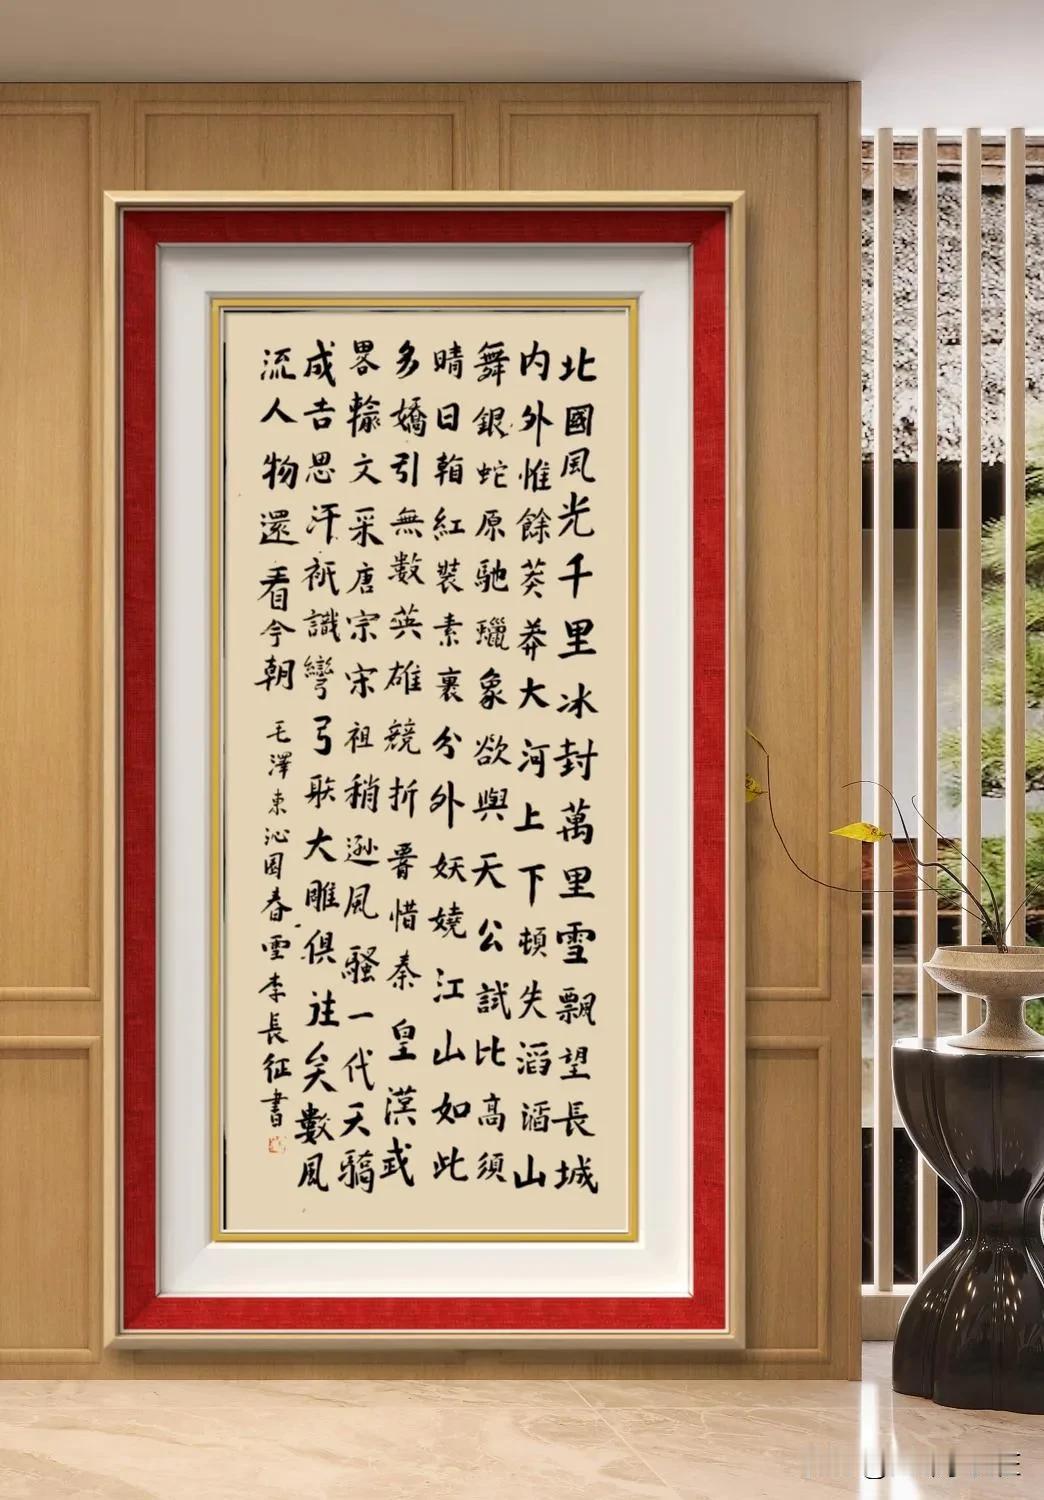 北國風光千里冰封萬里雪飄望長城
内外惟餘莽莽大河上下頓失滔滔山
舞銀蛇原馳蠟象欲與天公試比高須
晴日看紅裝素裹分外妖嬈江山如此
多嬌引無數英雄競折腰惜秦皇漢武
畧輸文采唐宗宋祖稍遜風騷一代天驕
成吉思汗祇識彎弓射大雕俱往矣數風
流人物還看今朝
毛澤東沁园春雪李長征書